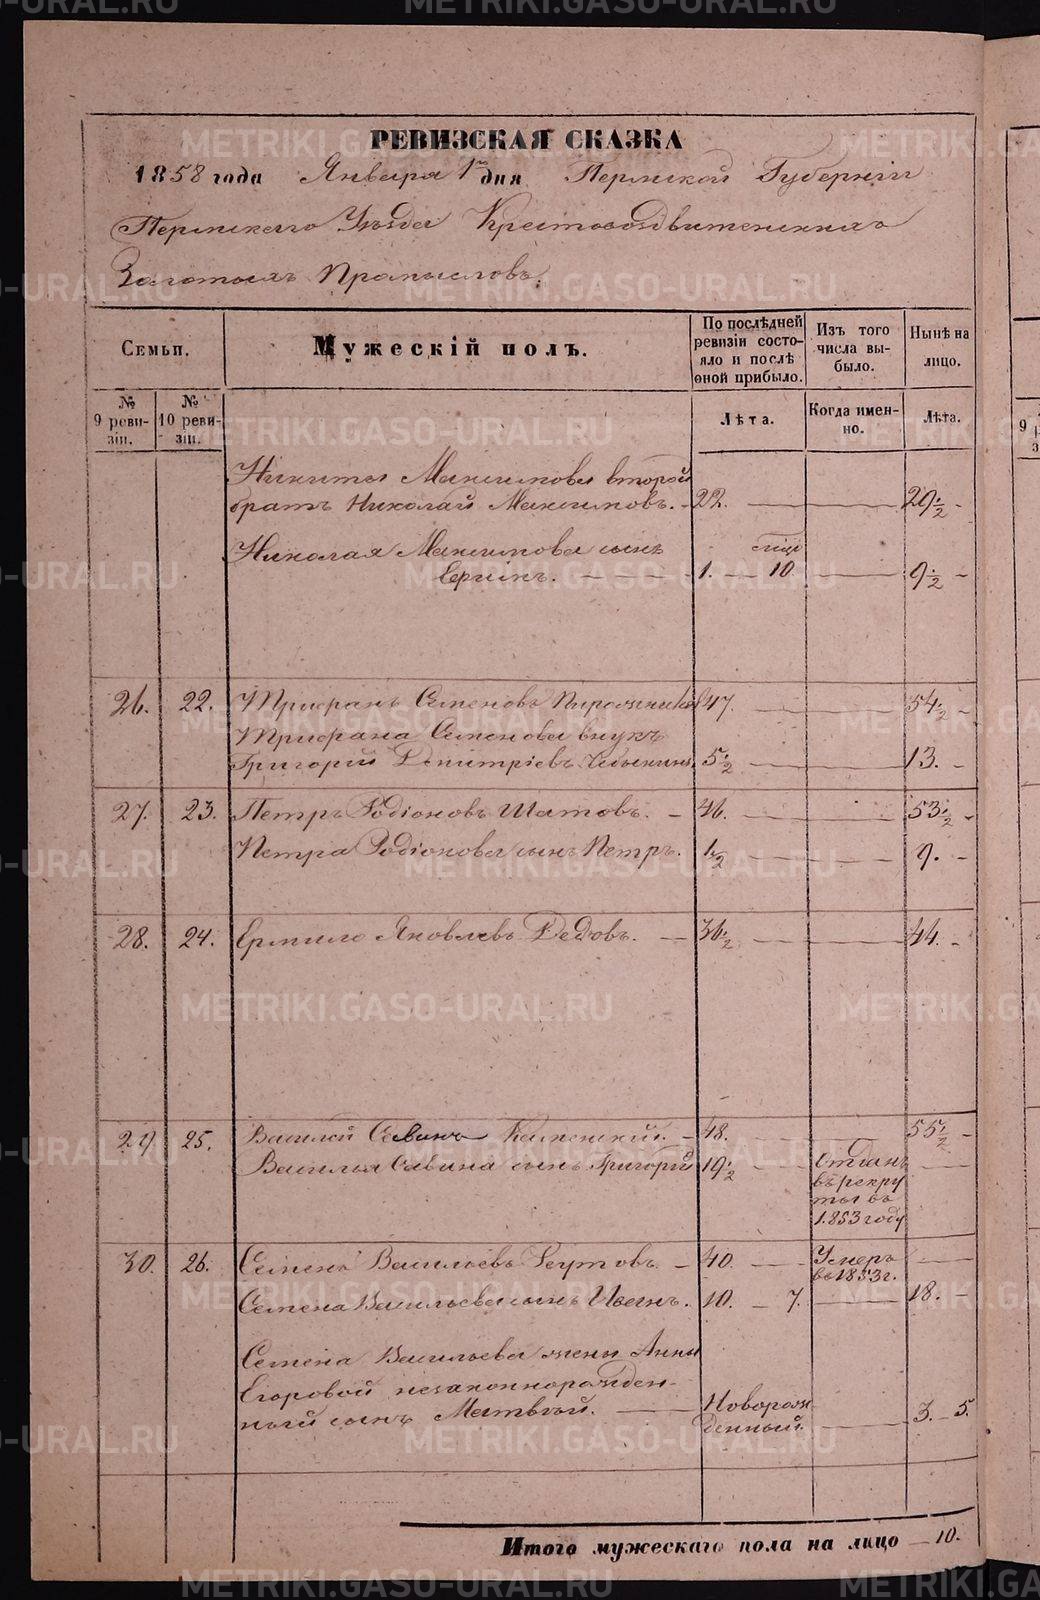 РЕВИЗСКАЯ СКАЗКА
1858 года Января 1го дня Пермской Губернiи
Пермскаго Уѣзда Крестовоздвиженскихъ
Золотыхъ Промысловъ.
Семьи. Мужескiй полъ. По послѣдней ревизiи состояло и послѣ оной прибыло. Изъ того числа выбыло. Нынѣ на лицо.
№ 9 ревизiи. № 10 ревизiи. Лѣта. Когда именно. Лѣта.
Никиты Максимова второй
братъ Николай Максимовъ. 22. 29 1/2
Николая Максимова сынъ
1. 10 9 1/2
26. 22. Трифанъ Семеновъ 47. 54 1/2
Трифана Семенова внукъ
Григорiй Дмитрiевъ 5 1/2 13.
27. 23. Петръ Родiоновъ Шатовъ. 46. 53 1/2
Петра Родiонова сынъ Петръ. 1 1/2 9.
28. 24. Ермило Яковлевъ Дедовъ. 36 1/2 44.
29. 25. Василiй Савинъ Каменскiй. 48. 55 1/2
Василья Савина сынъ Григорiй 19 1/2 Отданъ
въ рекру
ты въ
1853 году
30. 26. Семенъ Васильевъ Реутовъ. 40. Умеръ
въ 1853 г.
Семена Васильева сынъ Иванъ. 10. 7. 18.
Семена Васильева жены Анны
Егоровой незаконнорожден-
ный сынъ Матвѣй. Новорож
денный. 3. 5.
Итого мужескаго пола на лицо 10.
METRIKI.GASO-URAL.RU